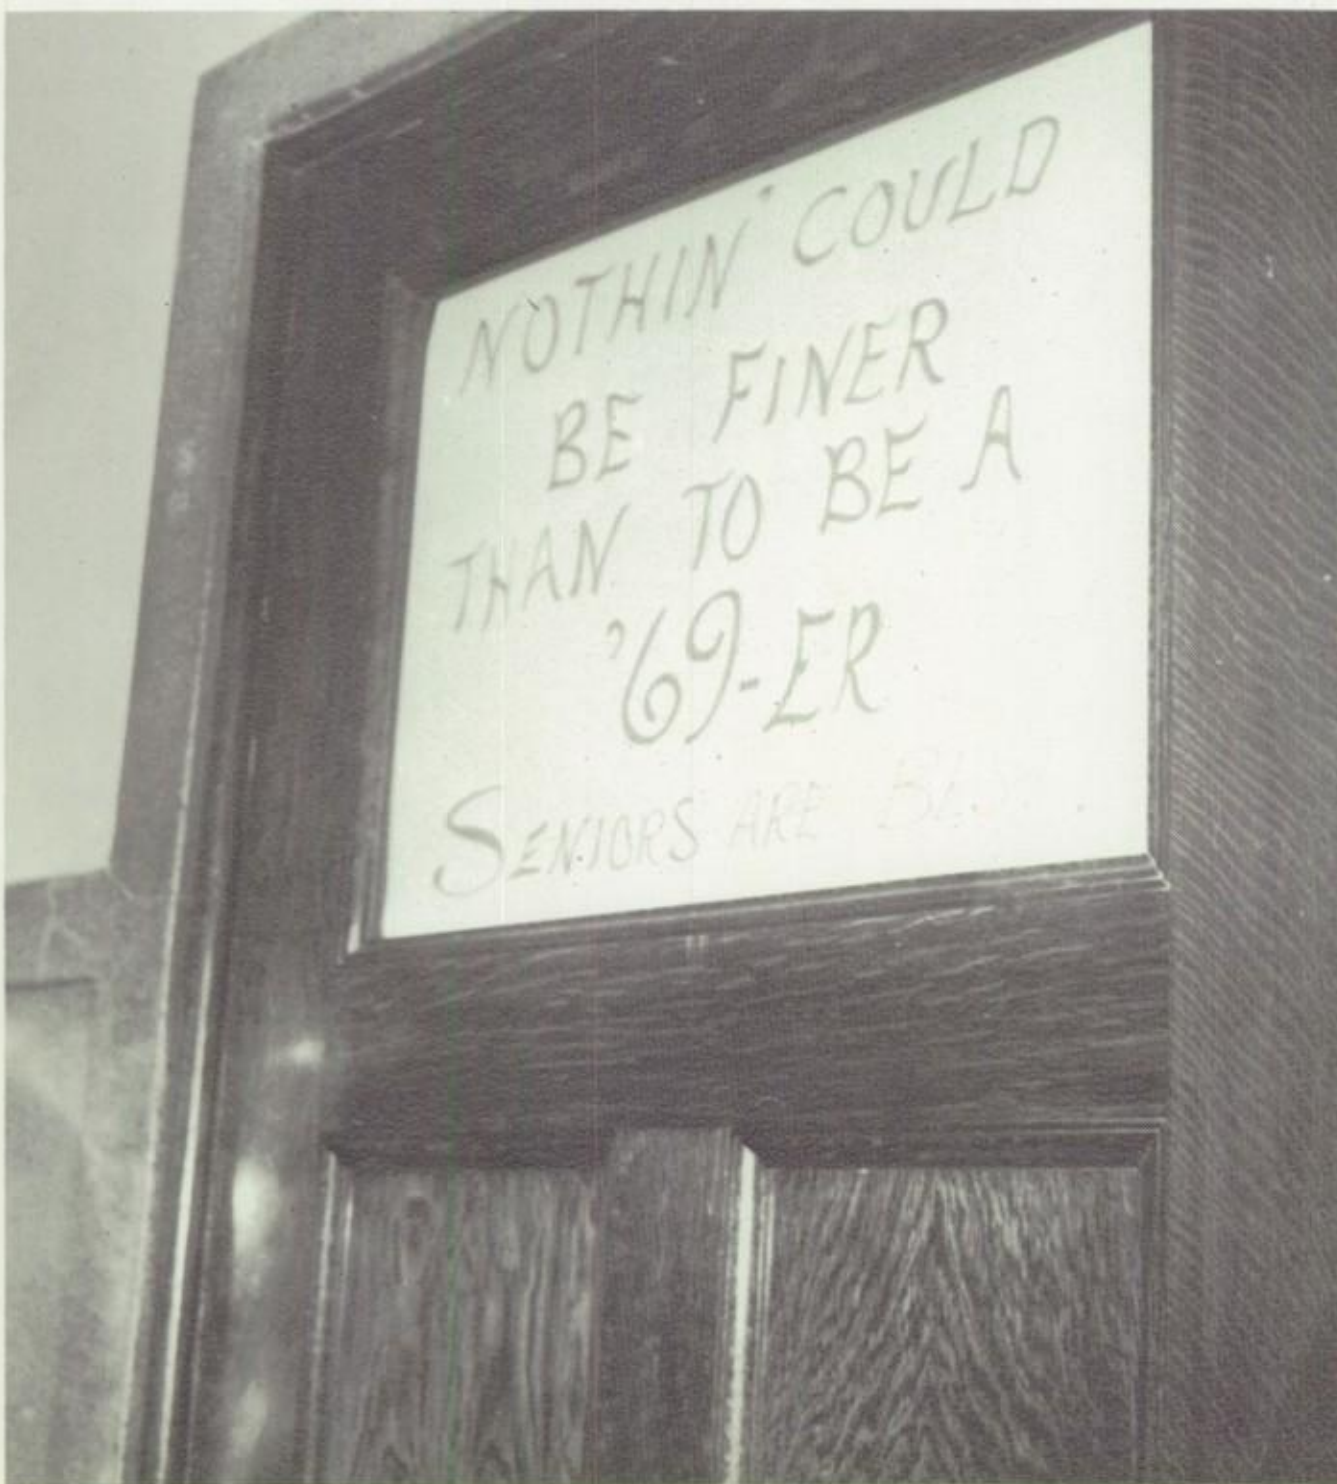 NOTHIN' COULD
BE FINER
THAN TO BE A
'69-ER
SENIORS ARE